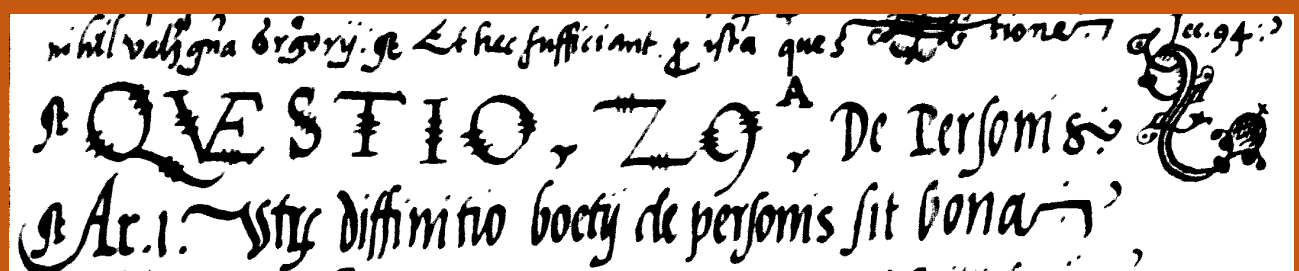 nihil valẽ gña Grgorij. Et hec sufficiant. ꝓ ista ques tione. fcc. 94.
QVESTIO, 29.A, De Personis.
Ar. 1. Vtrũ diffinitio boetij de personis sit bona